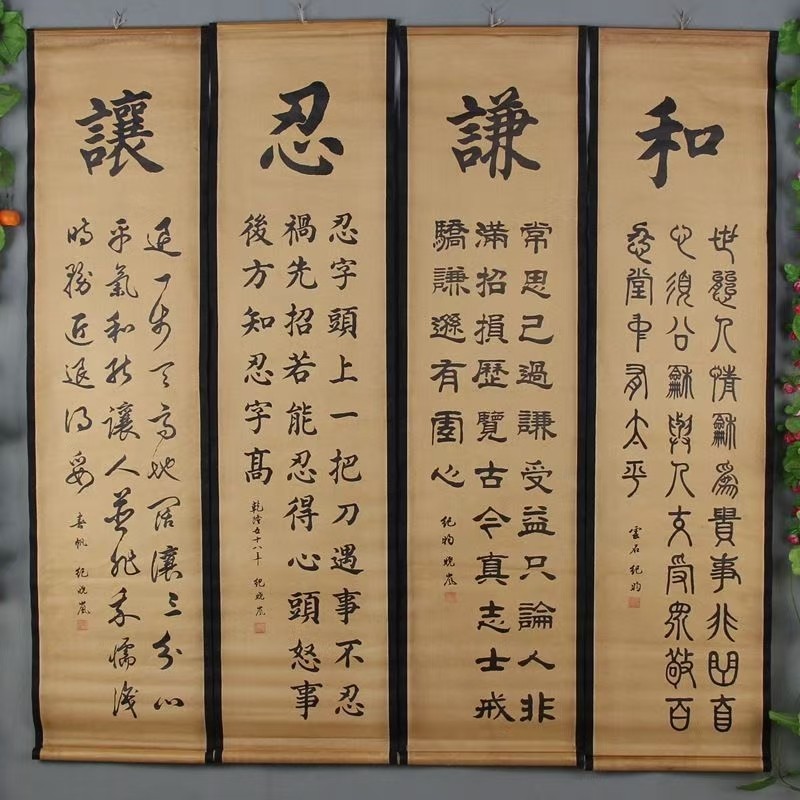 和
世態人情龢為貴事非曲直
心須公龢與人交受眾敬百
忍堂中有太平
雲石 紀昀
謙
常思己過謙受益只論人非
滿招損歷覽古今真志士戒
驕謙遜有虛心
紀昀 曉嵐
忍
忍字頭上一把刀遇事不忍
禍先招若能忍得心頭怒事
後方知忍字髙
乾隆五十八年 紀曉嵐
讓
退一步天高地闊讓三分心
平氣和能讓人並非我懦識
時務進退得妥
春帆 紀曉嵐